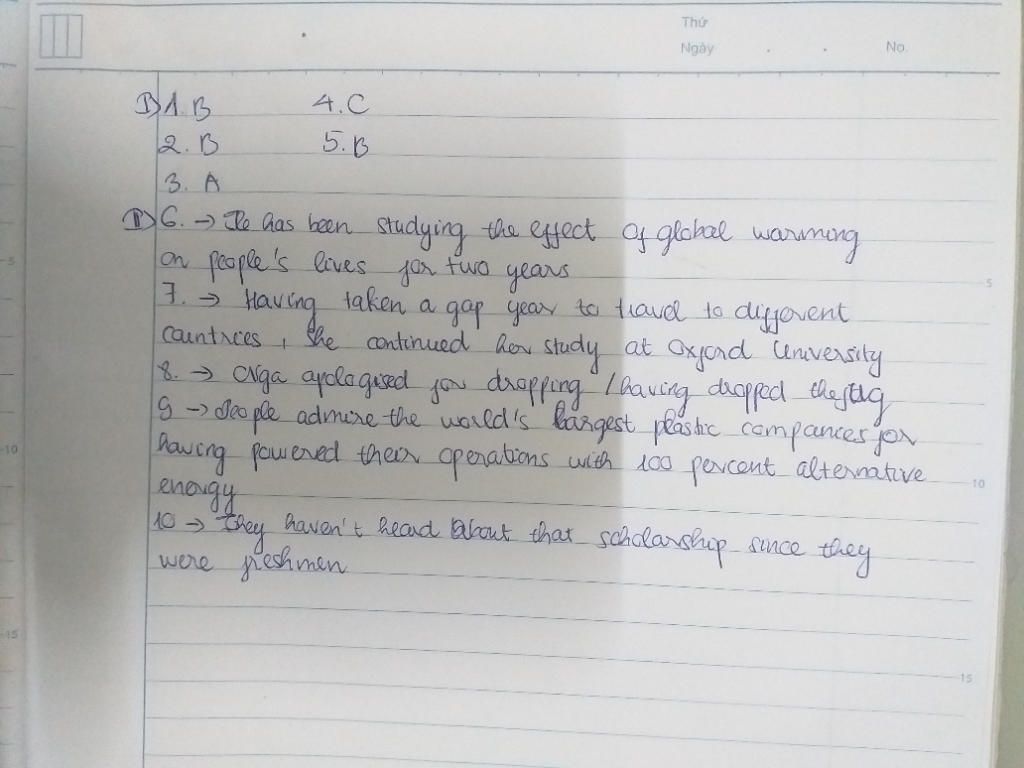 Thứ
Ngày . . No.
I) 1. B 4. C
2. B 5. B
3. A
II) 6. → He has been studying the effect of global warming
on people's lives for two years
7. → Having taken a gap year to travel to different
countries, she continued her study at Oxford University
8. → Nga apologised for dropping / having dropped the jug
9 → People admire the world's largest plastic companies for
having powered their operations with 100 percent alternative
energy
10 → They haven't heard about that scholarship since they
were freshmen
5
10
15
5
10
15